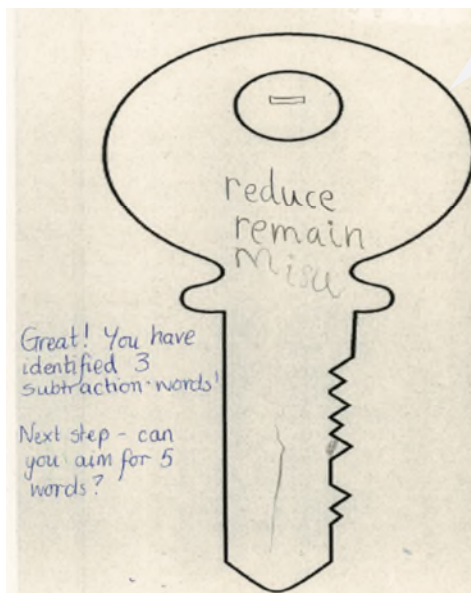 reduce
remain
misu
Great! You have
identified 3
subtraction words!
Next step - can
you aim for 5
words?